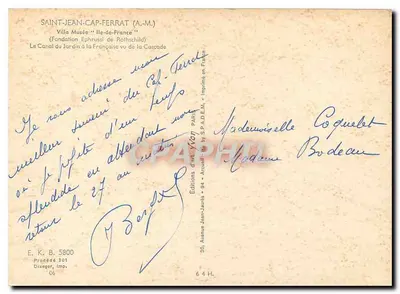 SAINT-JEAN-CAP-FERRAT (A.-M.)
Villa Musée " Ile-de-France "
(Fondation Ephrussi de Rothschild)
Le Canal du Jardin à la Française vu de la Cascade
Je vous adresse mon
meilleur souvenir du Cap-Ferrat
où je profite d'un temps
splendide en attendant mon
retour le 27 au matin
Mademoiselle Coquelet
Madame Bodeau
CPARAMA
E. K. B. 5800
Procédé 301
Draeger, imp.
06
Editions d'art Yvon PARIS
20, Avenue Jean-Jaurès - 94 - Arcueil
S.P.A.D.E.M. - Imprimé en France
6 4 H.